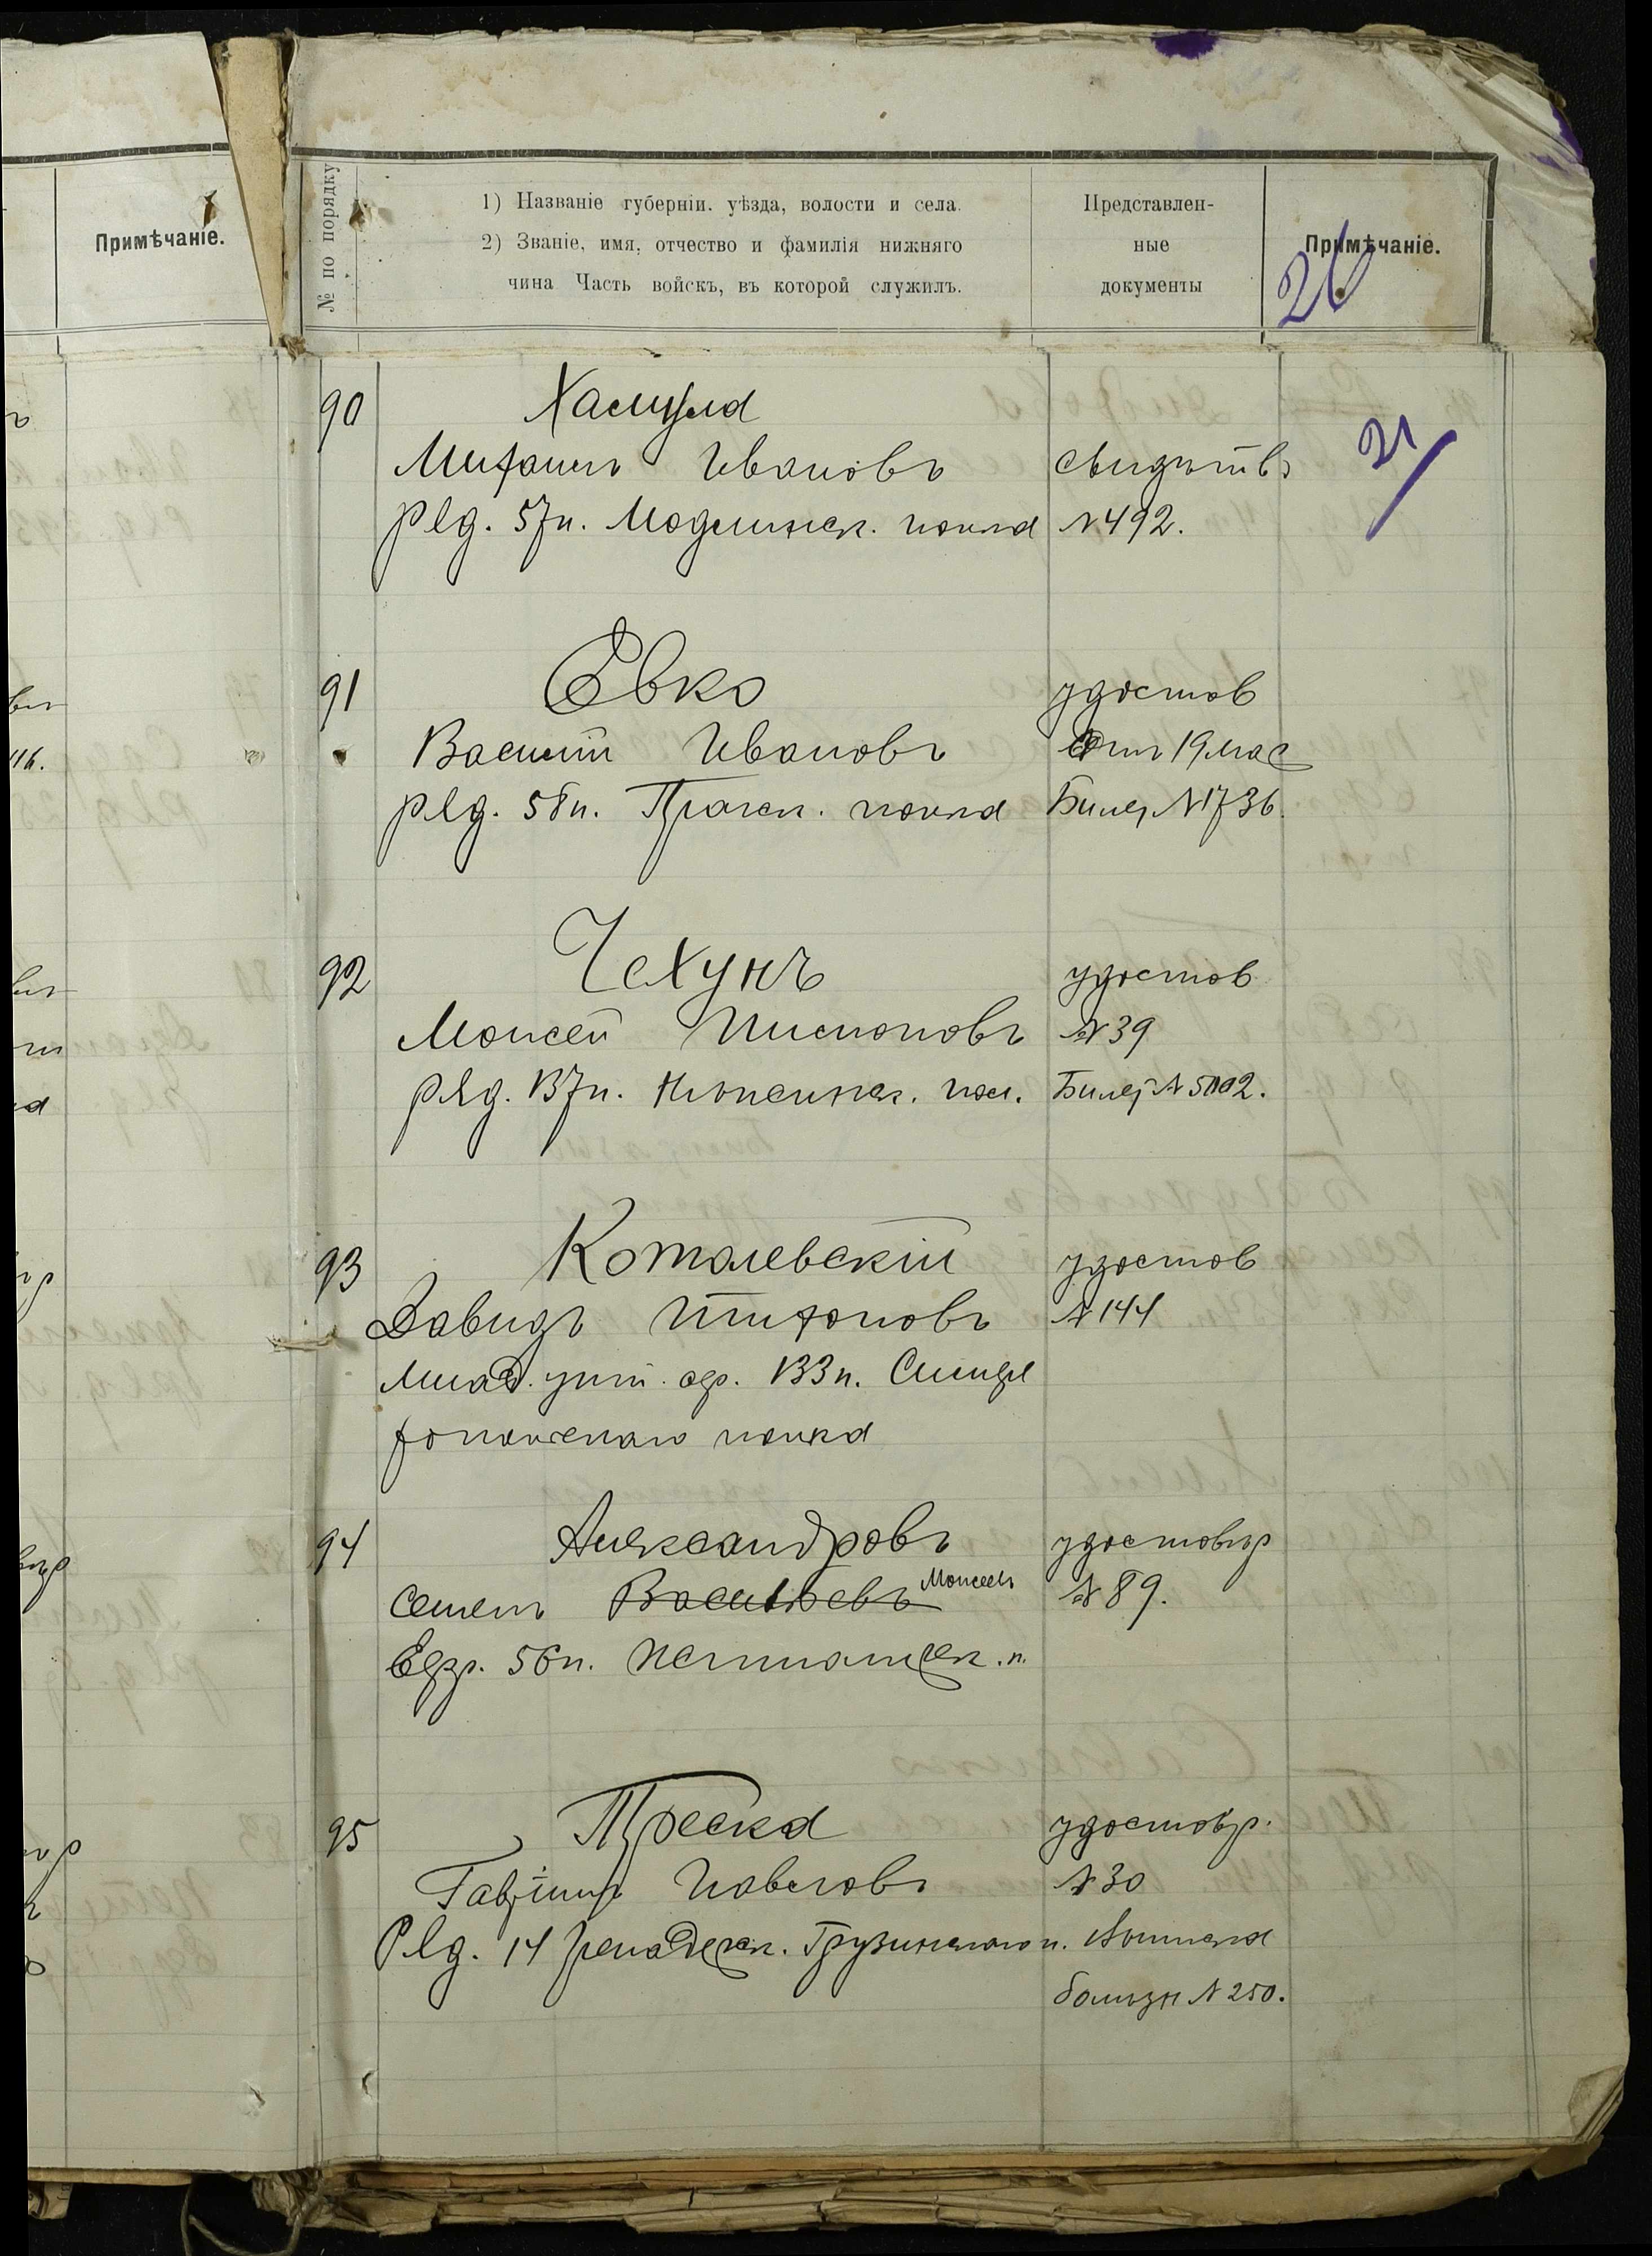 Примѣчаніе.
№ по порядку
1) Названіе губерніи. уѣзда, волости и села.
2) Званіе, имя, отчество и фамилія нижняго
чина Часть войскъ, въ которой служилъ.
Представлен-
ные
документы
Примѣчаніе.
26
90
Михаилъ Ивановъ
ряд. 57п. Модлинск. полка
свидѣтв
№492.
21
91 Евко удостов
Василій Ивановъ
19 мая
ряд. 58п. Пражск. полка Билет №1736.
92 Чехунъ удостов
Моисей №39
ряд. 137п. Нѣжинск. пол. Билет №5002.
93 Коталевскій удостов
Давидъ №144
Млад. унт. оф. 133п. Симфе
ропольскаго полка
94 Александровъ удостовѣр
Семенъ Васильевъ Моисеев №89.
Ефр. 56п. Житомирск. п.
95 Треска удостовѣр.
Гавріилъ Павловъ №30
Ряд. 14 Гренадерск. Грузинскаго п.
болѣзн №250.